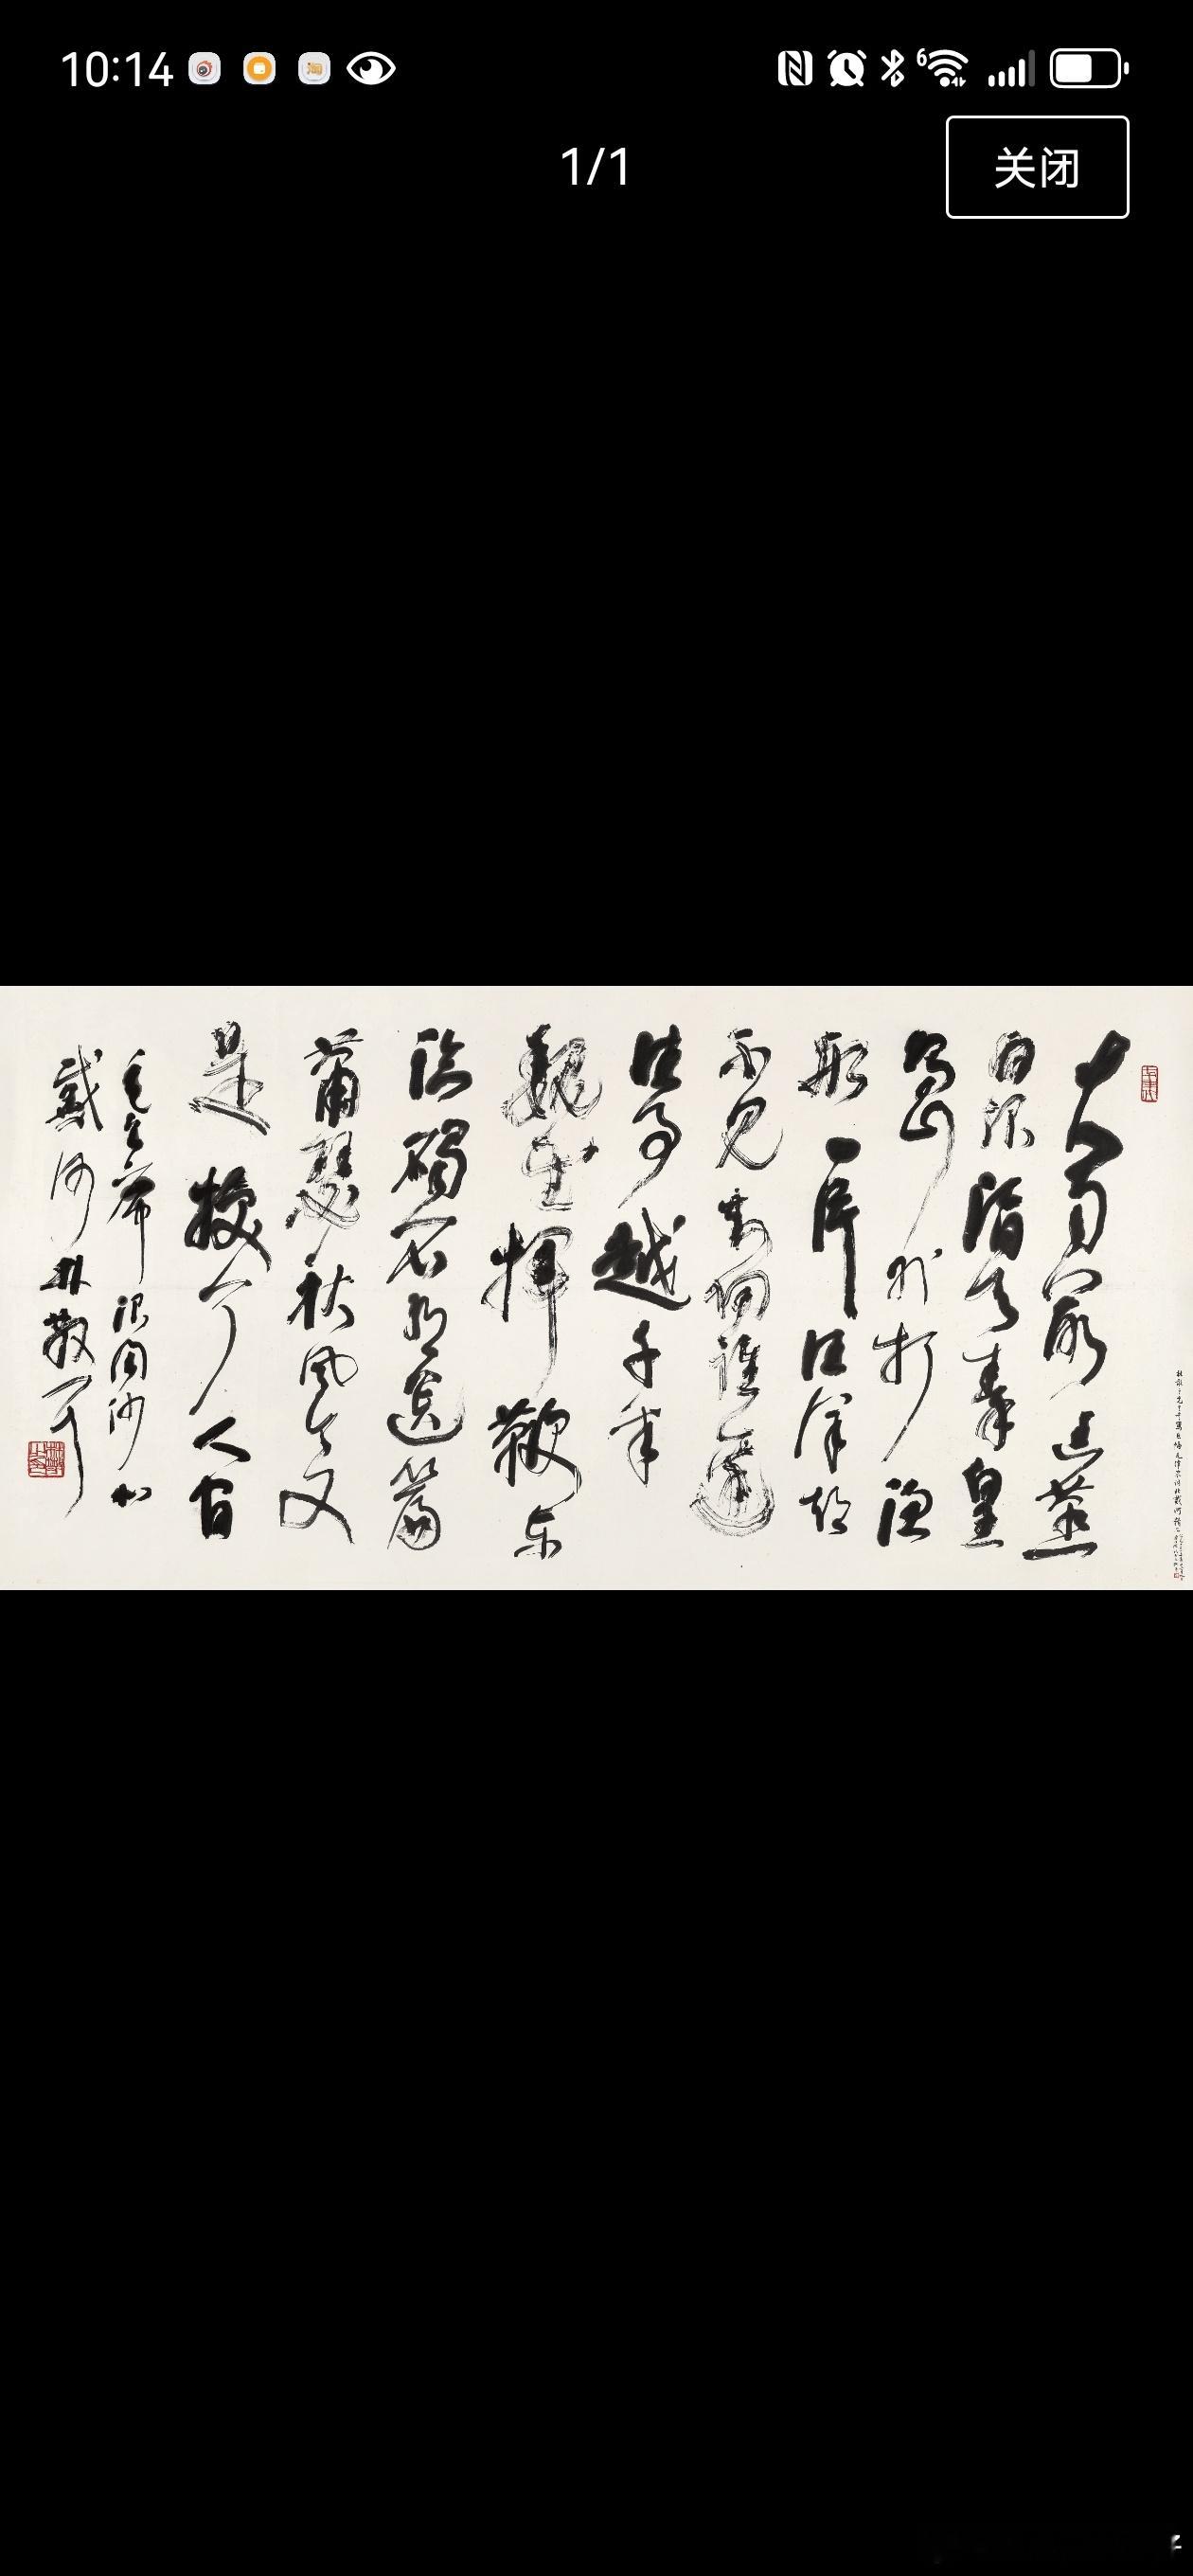 10:14
1/1
关闭
大雨落幽燕
白浪滔天秦皇
岛外打渔
船一片汪洋都
不见知向谁边
往事越千年
魏武挥鞭东
临碣石有遗篇
萧瑟秋风今又
是换了人间
毛主席浪淘沙北
戴河 林散耳